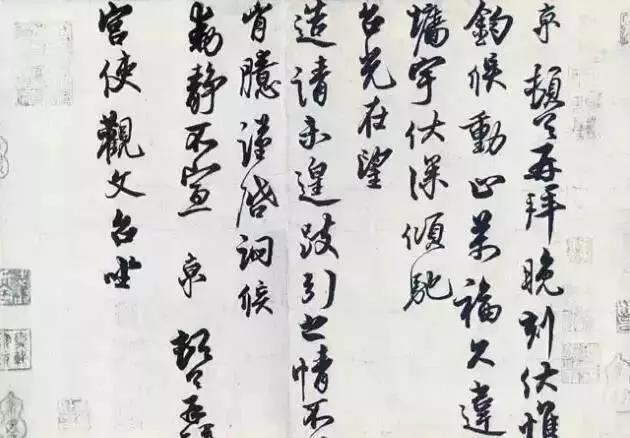 京 頓首再拜晚刻伏惟
鈞候動止萬福久違
墉宇伏深傾馳
台光在望
造請未遑跂引之情不
胷臆謹啓詗候
動靜不宣 京 頓首再拜
宮使觀文台坐